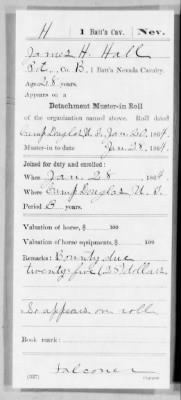 H 1 Batt'n Cav. Nev.
James H. Hall
Co. B, 1 Batt'n Nevada Cavalry.
Age 28 years.
Appears on a
Detachment Muster-in Roll
of the organization named above. Roll dated
Camp Douglas U. T. Jan. 1864.
Muster-in to date Jan 28, 1864.
Joined for duty and enrolled:
When Jan. 28, 1864.
Where Camp Douglas U. T.
Period 3 years.
Valuation of horse, $ 100
Valuation of horse equipments, $ 100
Remarks: Bounty due
twenty five (25) dollars
So appears on roll
Book mark:
Falconer
Copyist.